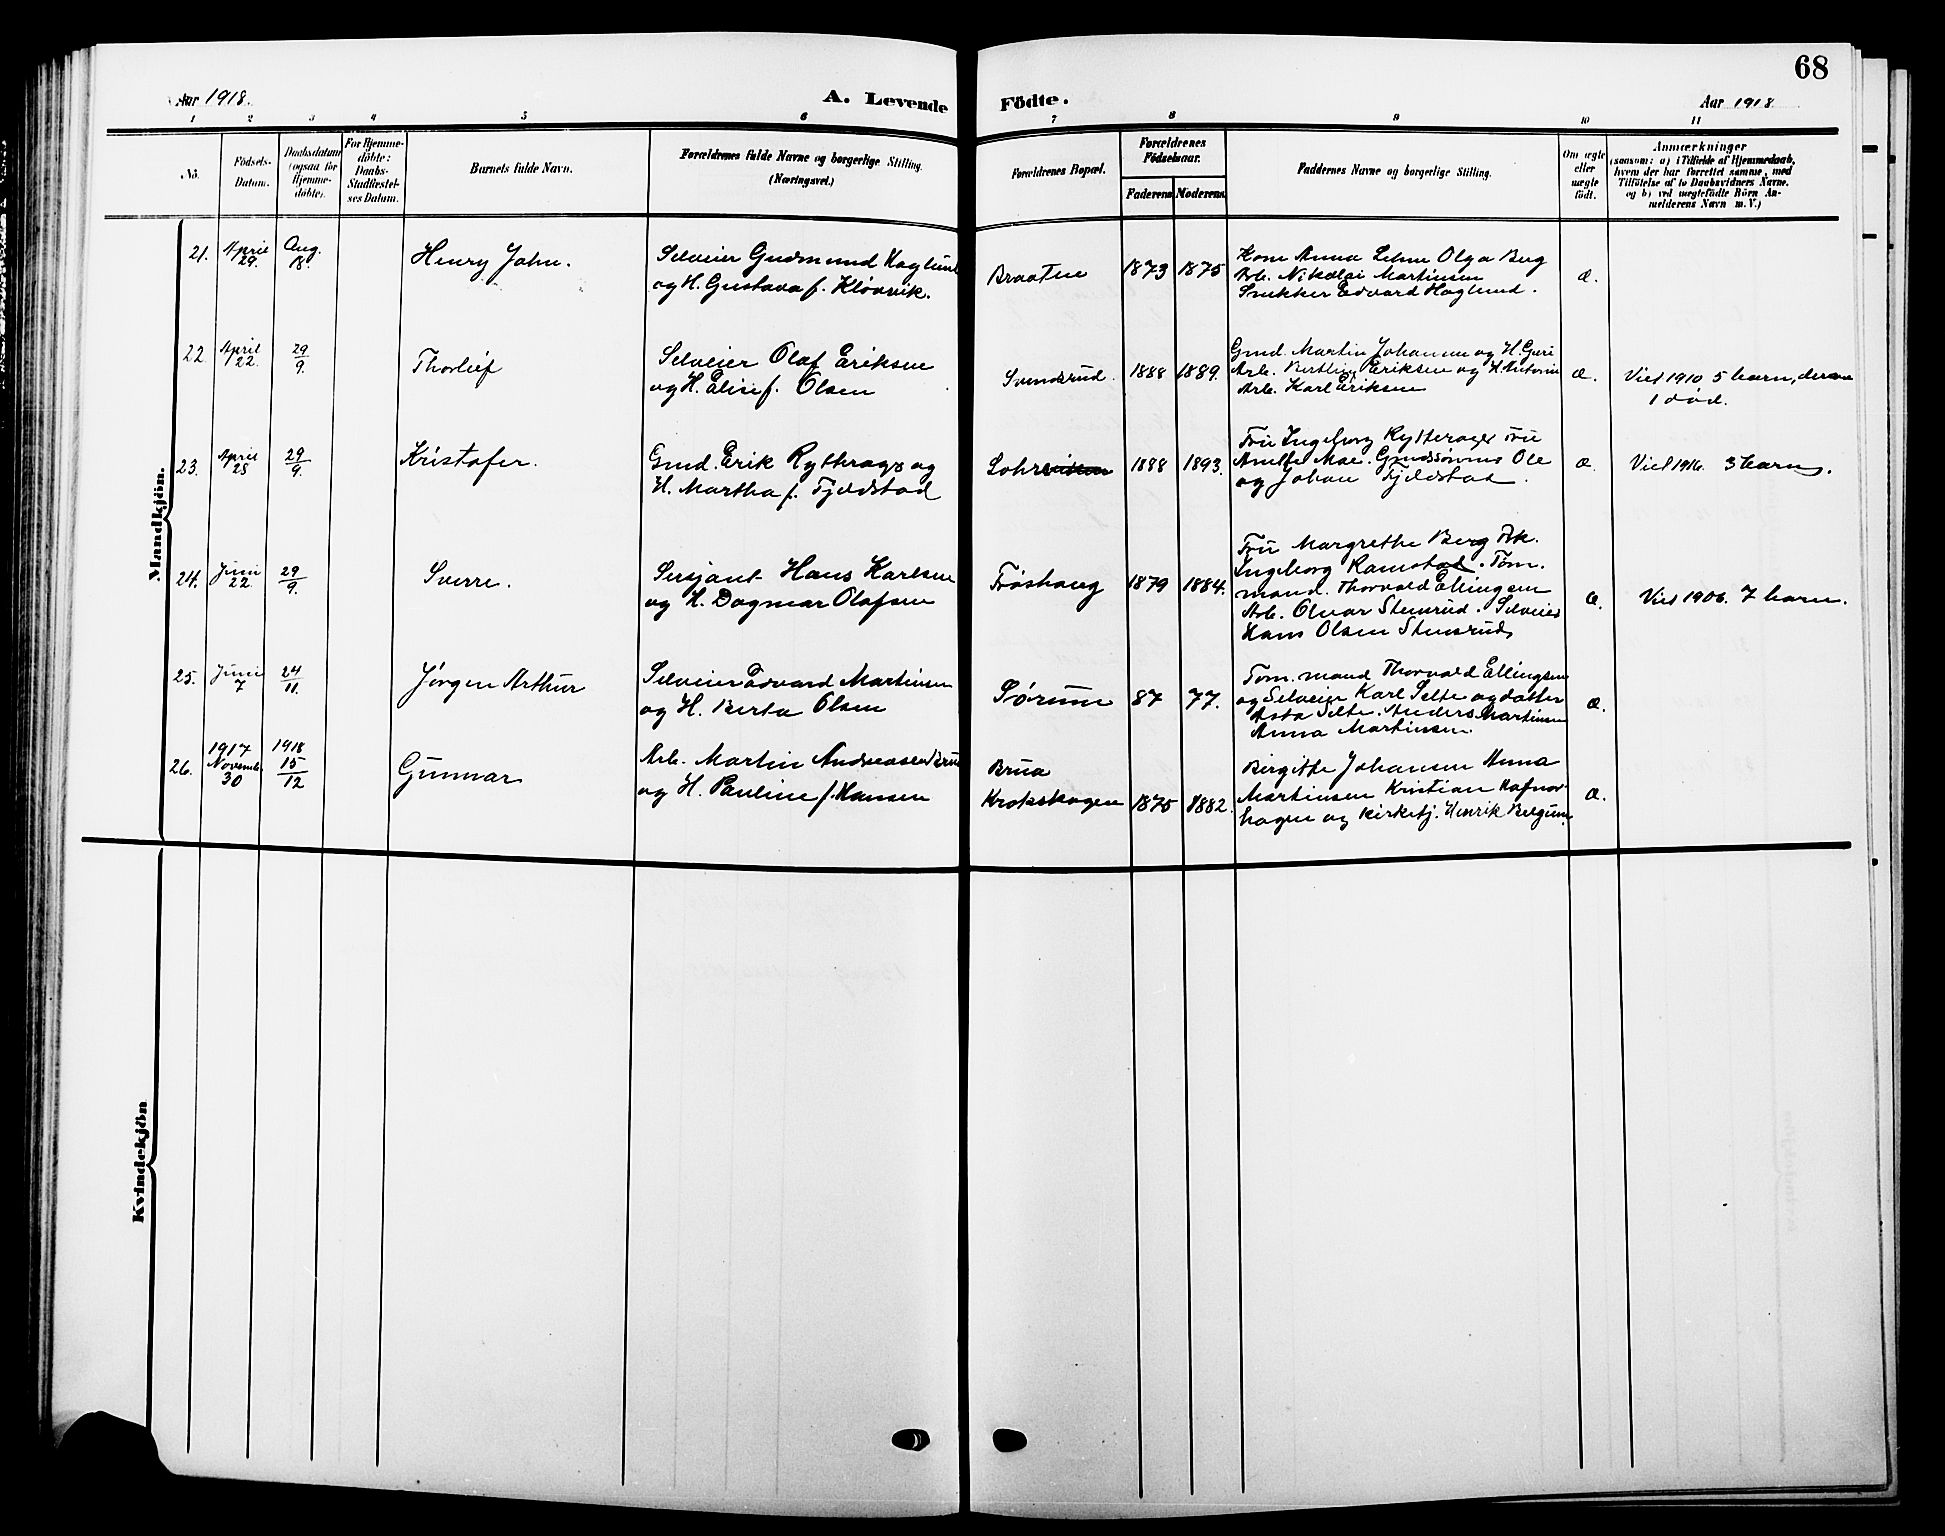 68
Aar 1918.
A. Levende Födte.
Aar 1918
1 2 3 4 5 6 7 8 9 10 11
No.
Födsels-
Datum.
Daabsdatum
(ogsaa for
Hjemme-
döbte).
For Hjemme-
döbte:
Daabs-
Stadfæstel-
ses Datum.
Barnets fulde Navn.
Forældrenes fulde Navne og borgerlige Stilling.
(Næringsvei.)
Forældrenes Bopæl.
Forældrenes
Födselsaar.
Faderens Moderens
Faddernes Navne og borgerlige Stilling.
Om ægte
eller
uægte
födt.
Anmærkninger
(saasom: a) i Tilfælde af Hjemmedaab,
hvem der har forrettet samme, med
Tilföielse af to Daabsvidners Navne.
og b) ved uægtefödte Börn An-
melderens Navn m. V.)
Mandkjön.
21.
April
29.
Aug.
18.
Henry John.
Selveier Gudmund Haglund
og H. Gustava f. Klövvik.
Braaten
1873 1875
Kone Anna Lehne Olga Berg
Arb. Nikolai Martinsen
Snekker Edvard Haglund.
æ.
22.
April
22.
29
9.
Thorleif
Selveier Olaf Eriksen
og H. Elise f. Olsen
Svensrud.
1888 1889.
Gmd. Martin Johansen og H. Guri
Arb. Bertling Eriksen og H. Antonie
Arb. Karl Eriksen
æ.
Viet 1910 5 barn, derav
1 död.
23.
April
28
29
9.
Kristofer.
Gmd. Erik Rytterager og
H. Martha f. Fjeldstad
Lohre
1888 1893.
Frü Ingeborg Rytterager Frü
Moe. Gmdssönnene Ole
og Johan Fjeldstad.
æ.
Viet 1916. 3 barn.
24.
Juni
22
29
9.
Sverre.
Sersjant Hans Karlsen
og H. Dagmar Olafsen
Fröshaug
1879 1884.
Frü Margrethe Berg Pk.
Ingeborg Ramstad. Töm.
mand. Thorvald Ellingsen
Arb. Olvar Stensrud. Selveier
Hans Olsen Stensrud
æ.
Viet 1906. 7 barn.
25.
Juni
7
24
11.
Jörgen Arthur
Selveier Edvard Martinsen
og H. Berta Olsen
Sörum
87 77.
Töm. mand Thorvald Ellingsen
og Selveier Karl Selte og datter
Asta Selte. Anders Martinsen
Anna Martinsen.
æ.
26.
1917
Novemb.
30
1918
15
12
Gunnar
Arb. Martin Andreasen Brua
og H. Pauline f. Hansen
Brua
Krokskogen
1875 1882.
Birgitte Johansen Anna
Martinsen Kristian Hafnor-
hagen og Kirketj. Henrik Bergum.
æ.
Kvindekjön